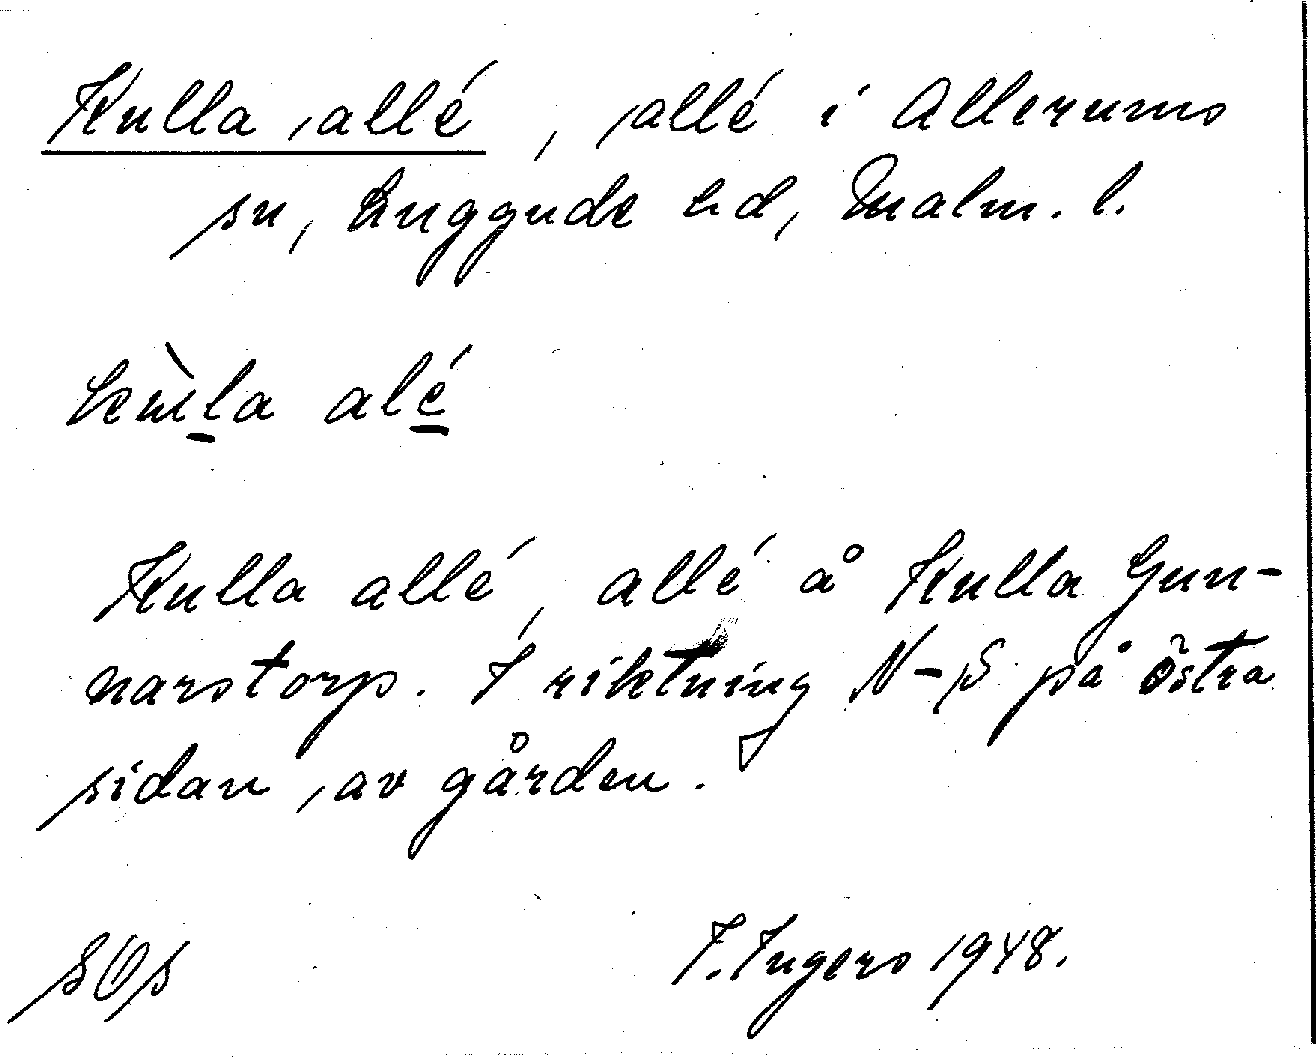 Kulla allé, allé i Allerums
sn, Luggude hd, Malm. l.
alé
Kulla allé, allé å Kulla Gun-
narstorp. I riktning N-S på östra
sidan av gården.
SOS F. Ingers 1948.